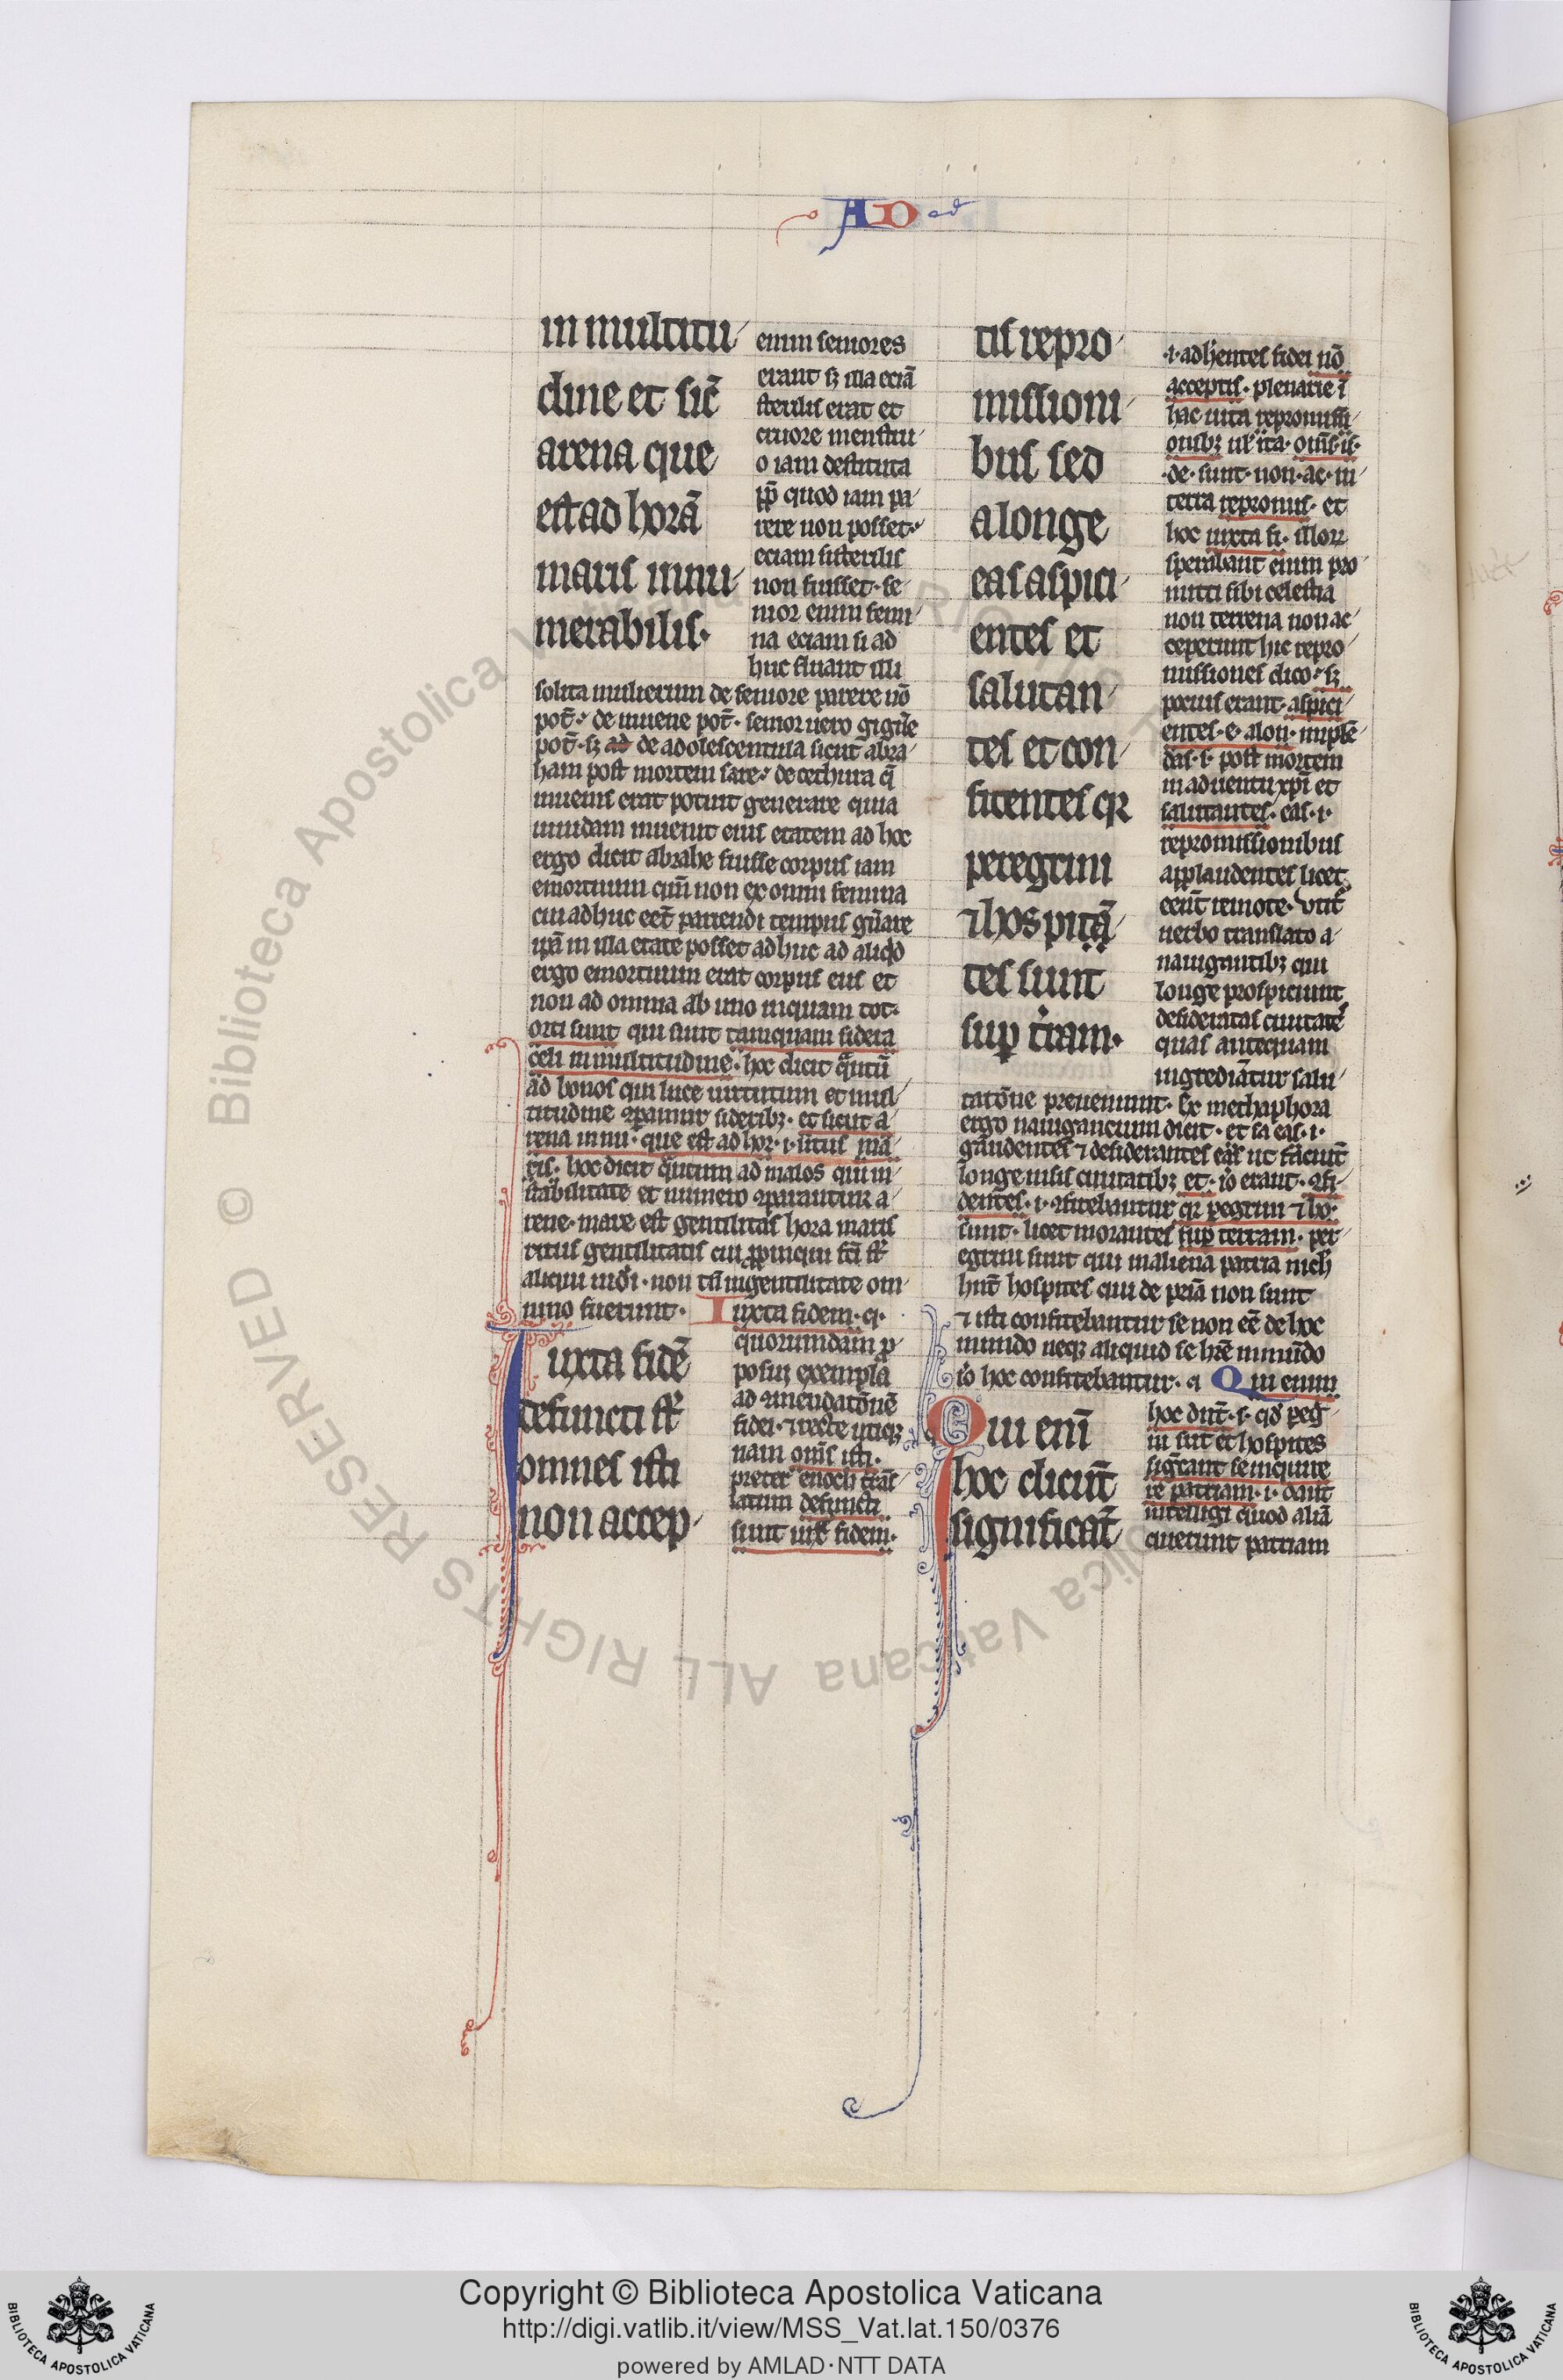 AD ad
in multitu
dine et sic̃
arena que
est ad horã
maris innu
merabilis.
enim seniores
erant sꝫ illa eciã
sterilis erat et
cruore menstru
o iam destituta
ꝓp̃ quod iam pa
rere non posset.
eciam si sterilis
non fuisset. se
nior enim femi
na eciam si ad
huc fluant illi
solita mulierum de seniore parere nõ
pot̃. de iuuene pot̃. senior uero gignẽ
pot̃. sꝫ ad de adolescentula sicut abra
ham post mortem sare. de cethura q̃
iuuenis erat potuit generare quia
uiuidam inuenit eius etatem ad hoc
ergo dicit abrahe fuisse corpus iam
emortuum cum̃ non ex omni femina
cui adhuc eet̃ pariendi tempus gñare
ipã in illa etate posset adhuc ad aliqͦd
ergo emortuum erat corpus eius et
non ad omnia ab uno inquam tot.
orti sunt qui sunt tamquam sidera
celi in multitudine. hoc dicit q̃ntũ
ad bonos qui luce uirtutum et mul
titudine ꝯparantur sideribꝫ. et sicut a
rena innu. que est ad hor. i. litus ma
ris. hoc dicit q̃ntum ad malos qui in
stabilitate et numero ꝯparantur a
rene. mare est gentilitas hora maris
ritus gentilitatis cui ꝓpinqui fc̃i st̃
aliqui iudi. non tñ in gentilitate om
nino fuerunt. Iuxta fidem. q.
Iuxta fidẽ
defuncti st̃
omnes isti
non accep
quorumdam ꝓ
posui exempla
ad ꝯmendatõnẽ
fidei. ⁊ recte utiqꝫ
nam om̃s isti.
preter enoch trãs
latum defuncti
sunt iux̃ fidem.
tis repro
missioni
bus sed
a longe
eas aspici
entes et
salutan
tes et con
fitentes qꝛ
peregrini
⁊ hospitã
tes sunt
suꝑ t̃ram.
.i. adh̃entes fidei nõ
acceptis. plenarie ĩ
hac uita repromissi
onibꝫ ul̃ ita. om̃s. is.
.de. sunt. non. ac. in
terra repromis. et
hoc iuxta fi. illoꝝ
sperabant enim pro
mitti sibi celestia
non terrena non ac
ceperunt hic repro
missiones dico. sꝫ
pocius erant. aspici
entes. e. a lon. implẽ
das. s. post mortem
in aduentu xp̃i et
salutantes. eas. i.
repromissionibus
applaudentes licet
eent̃ remote. Utit̃
uerbo translato a
nauigantibꝫ qui
longe prospiciunt
desideratas ciuitatẽ
quas antequam
ingrediãtur salu
tatõne preueniunt. Ex methaphora
ergo nauigancium dicit. et sa eas. i.
gaudentes ⁊ desiderantes eas ut faciũt
longe uisis ciuitatibꝫ et. iõ erant. ꝯfi
dentes. i. ꝯfitebantur qꝛ ꝑegrini ⁊ ho.
sunt. licet morantes suꝑ terram. per
egrini sunt qui in aliena patria nich̃
hñt hospites qui de pat̃ia non sunt
⁊ isti confitebantur se non eẽ de hoc
mundo neqꝫ aliquid se hr̃e in mũdo
iõ hoc confitebantur. q Qui enim
Qui enĩ
hoc dicũt
significãt
hoc dñt. s. qđ ꝑeg
ni sũt et hospites
sig̃cant se inquire
re patriam. i. dant
intelligi quod aliã
querunt patriam
Biblioteca Apostolica Vaticana ALL RIGHTS RESERVED ©
Copyright © Biblioteca Apostolica Vaticana
http://digi.vatlib.it/view/MSS_Vat.lat.150/0376
powered by AMLAD·NTT DATA
BIBLIOTECA APOSTOLICA VATICANA
BIBLIOTECA APOSTOLICA VATICANA